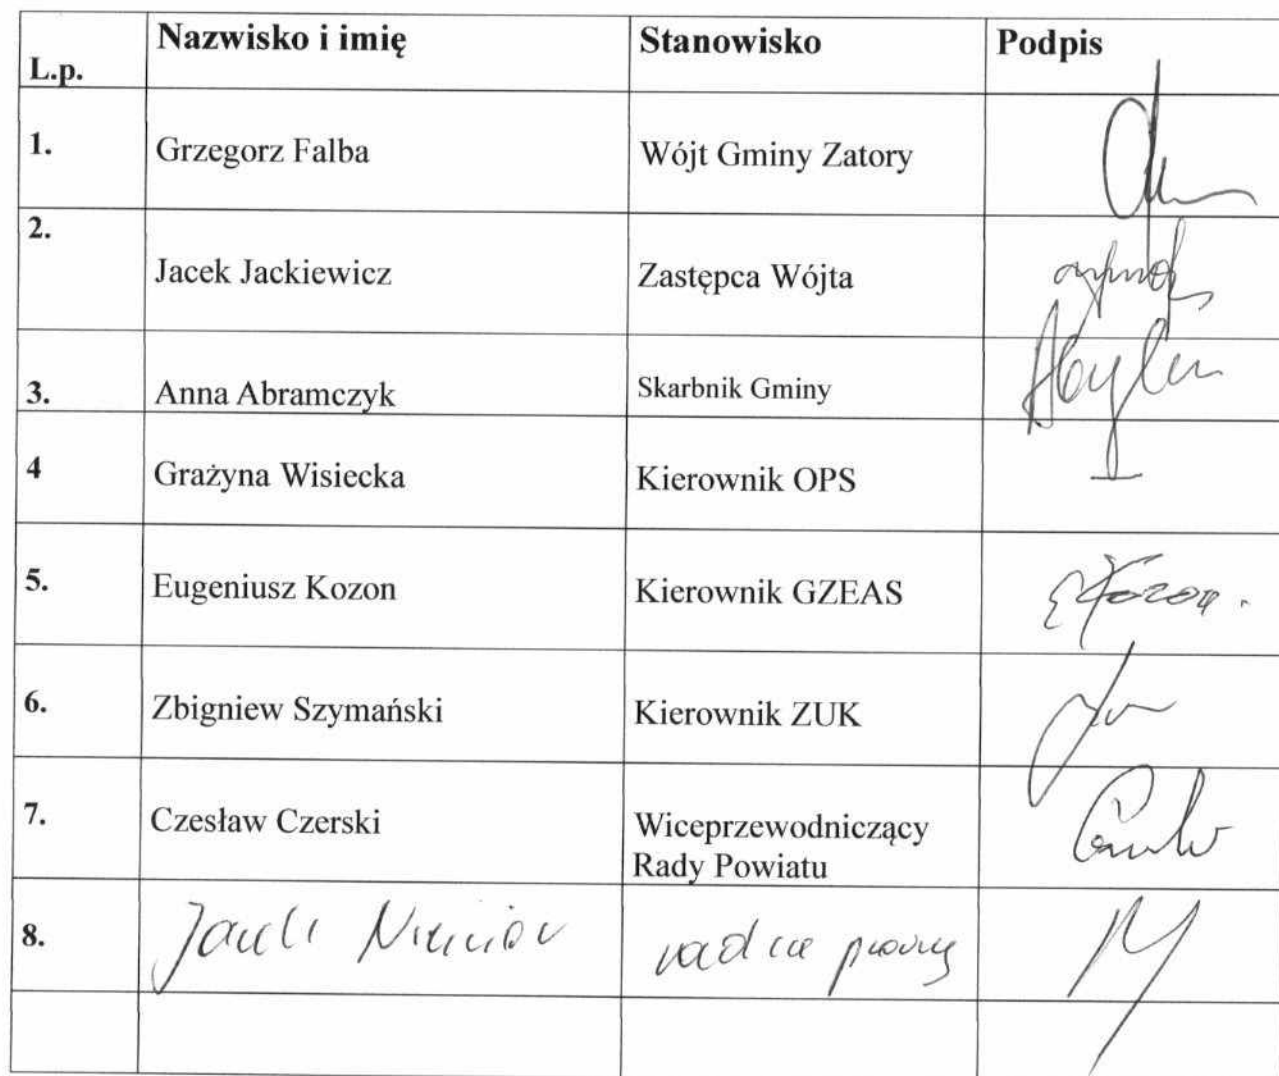 L.p. Nazwisko i imię Stanowisko Podpis
1. Grzegorz Falba Wójt Gminy Zatory
2. Jacek Jackiewicz Zastępca Wójta
3. Anna Abramczyk Skarbnik Gminy
4 Grażyna Wisiecka Kierownik OPS
5. Eugeniusz Kozon Kierownik GZEAS EKozon.
6. Zbigniew Szymański Kierownik ZUK
7. Czesław Czerski Wiceprzewodniczący
Rady Powiatu
8. radca prawny